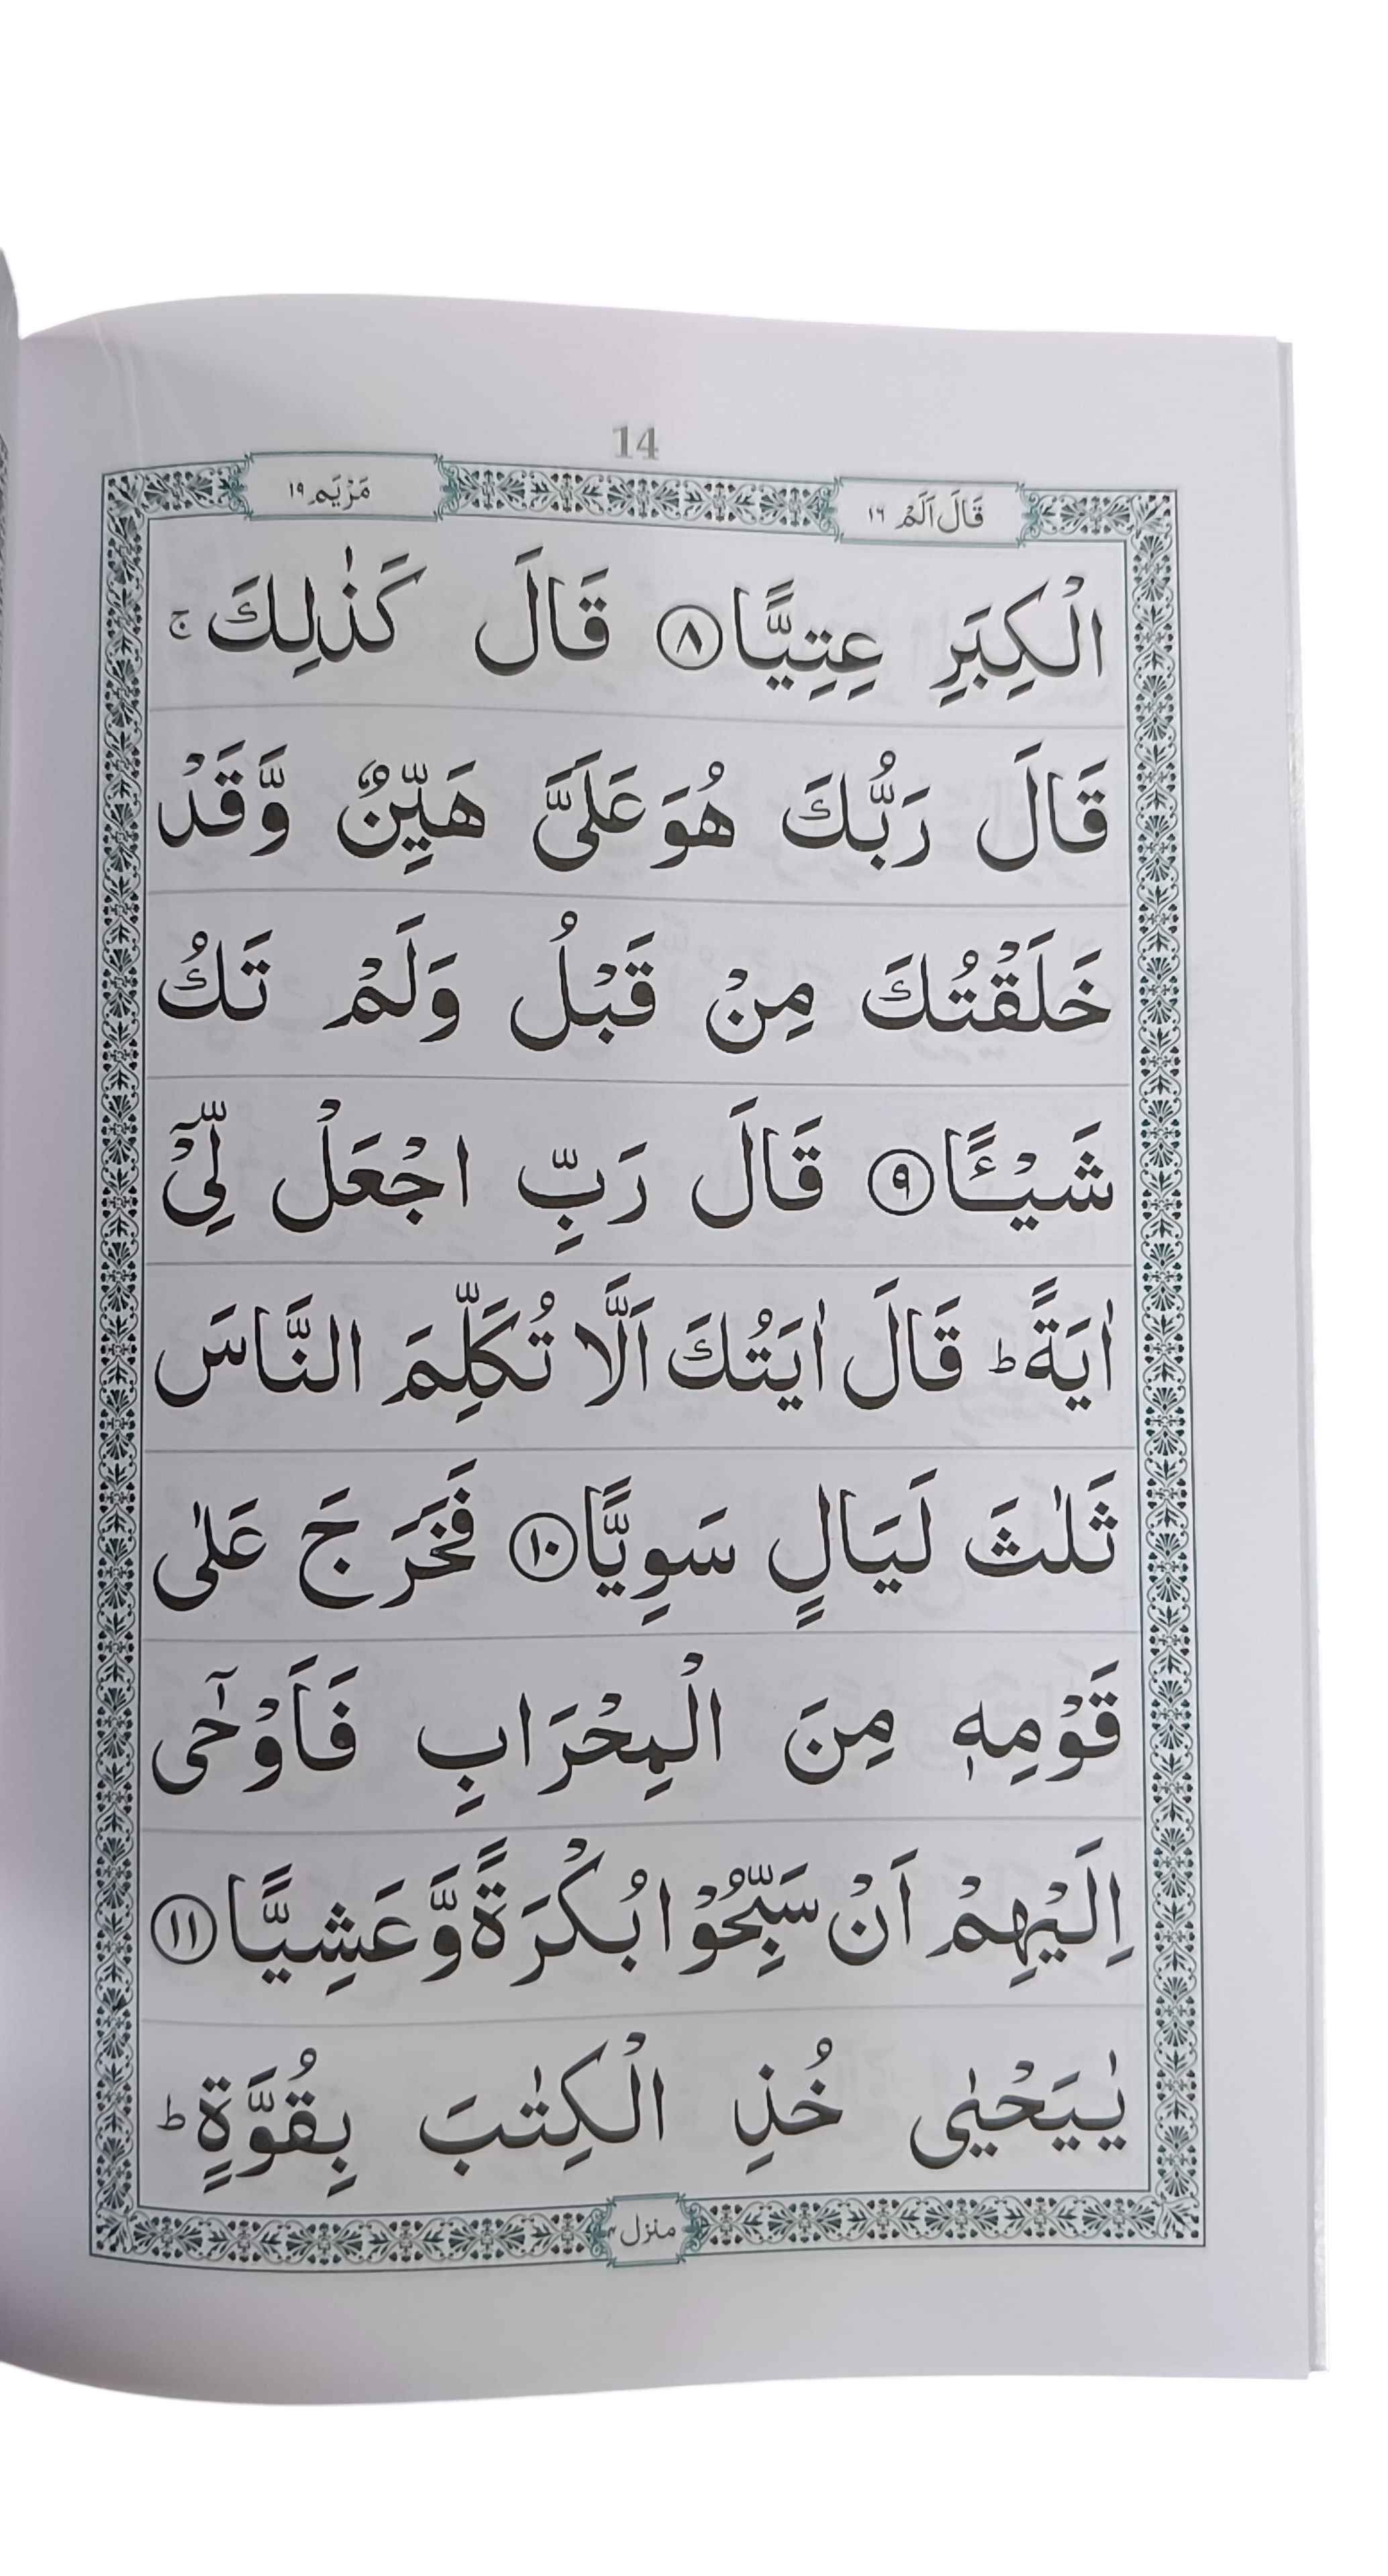 14
قَالَ اَلَمْ ١٦
مَرْيَم ١٩
الْكِبَرِ عِتِيًّا ٨ قَالَ كَذٰلِكَ ۚ
قَالَ رَبُّكَ هُوَ عَلَيَّ هَيِّنٌ وَّقَدْ
خَلَقْتُكَ مِنْ قَبْلُ وَلَمْ تَكُ
شَيْـًٔا ٩ قَالَ رَبِّ اجْعَلْ لِّيْٓ
اٰيَةً ؕ قَالَ اٰيَتُكَ اَلَّا تُكَلِّمَ النَّاسَ
ثَلٰثَ لَيَالٍ سَوِيًّا ١٠ فَخَرَجَ عَلٰى
قَوْمِهٖ مِنَ الْمِحْرَابِ فَاَوْحٰٓى
اِلَيْهِمْ اَنْ سَبِّحُوْا بُكْرَةً وَّعَشِيًّا ١١
يٰيَحْيٰى خُذِ الْكِتٰبَ بِقُوَّةٍ ؕ
منزل ٤